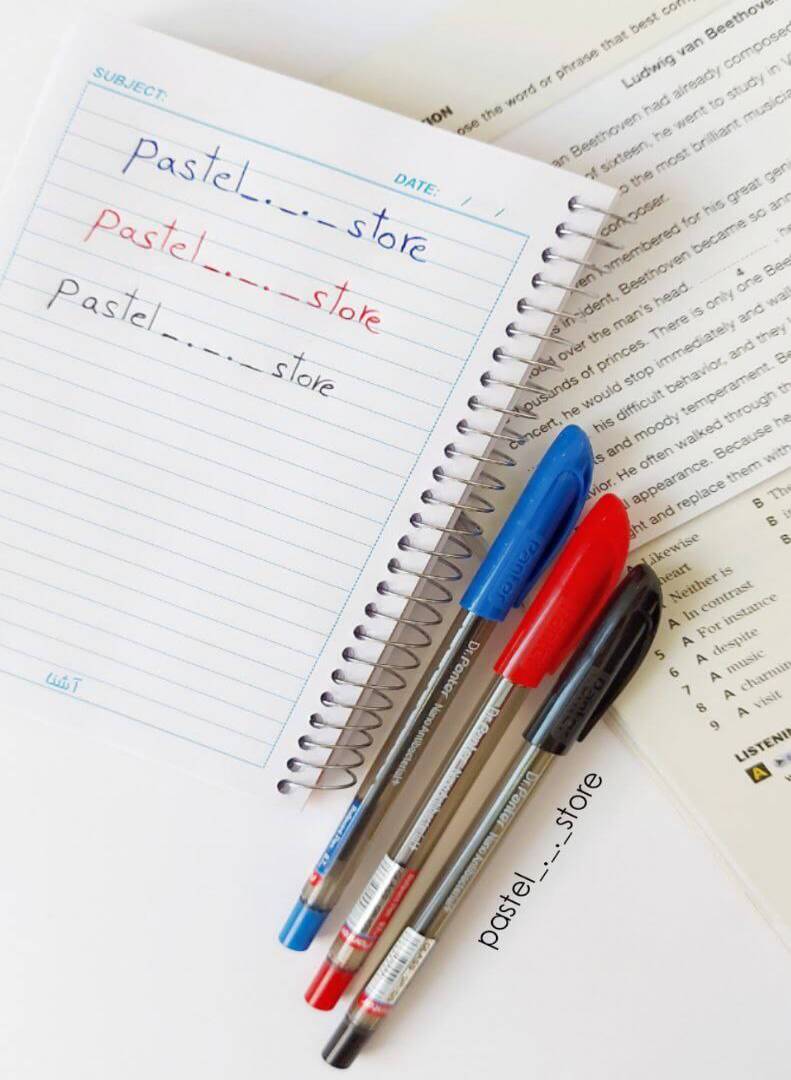 SUBJECT:
DATE: / /
Pastel_._._store
Pastel_._._store
Pastel_._._store
آشنا
Ludwig van Beethoven
ose the word or phrase that best com
an Beethoven had already composed
of sixteen, he went to study in V
o the most brilliant musicia
composer.
remembered for his great geni
incident, Beethoven became so ann
over the man's head. 4 , he
ousands of princes. There is only one Bee
concert, he would stop immediately and walk
his difficult behavior, and they
s and moody temperament. Be
vior. He often walked through th
appearance. Because he
ght and replace them with
Likewise
heart
Neither is
A In contrast
5 A For instance
6 A despite
7 A music
8 A charming
9 A visit
B The
B
LISTENING
A
Panter
Dr.Panter NanoAntibacterial+
Dr.Panter
Panter
Dr.Panter NanoAntibacterial+
pastel_._._store